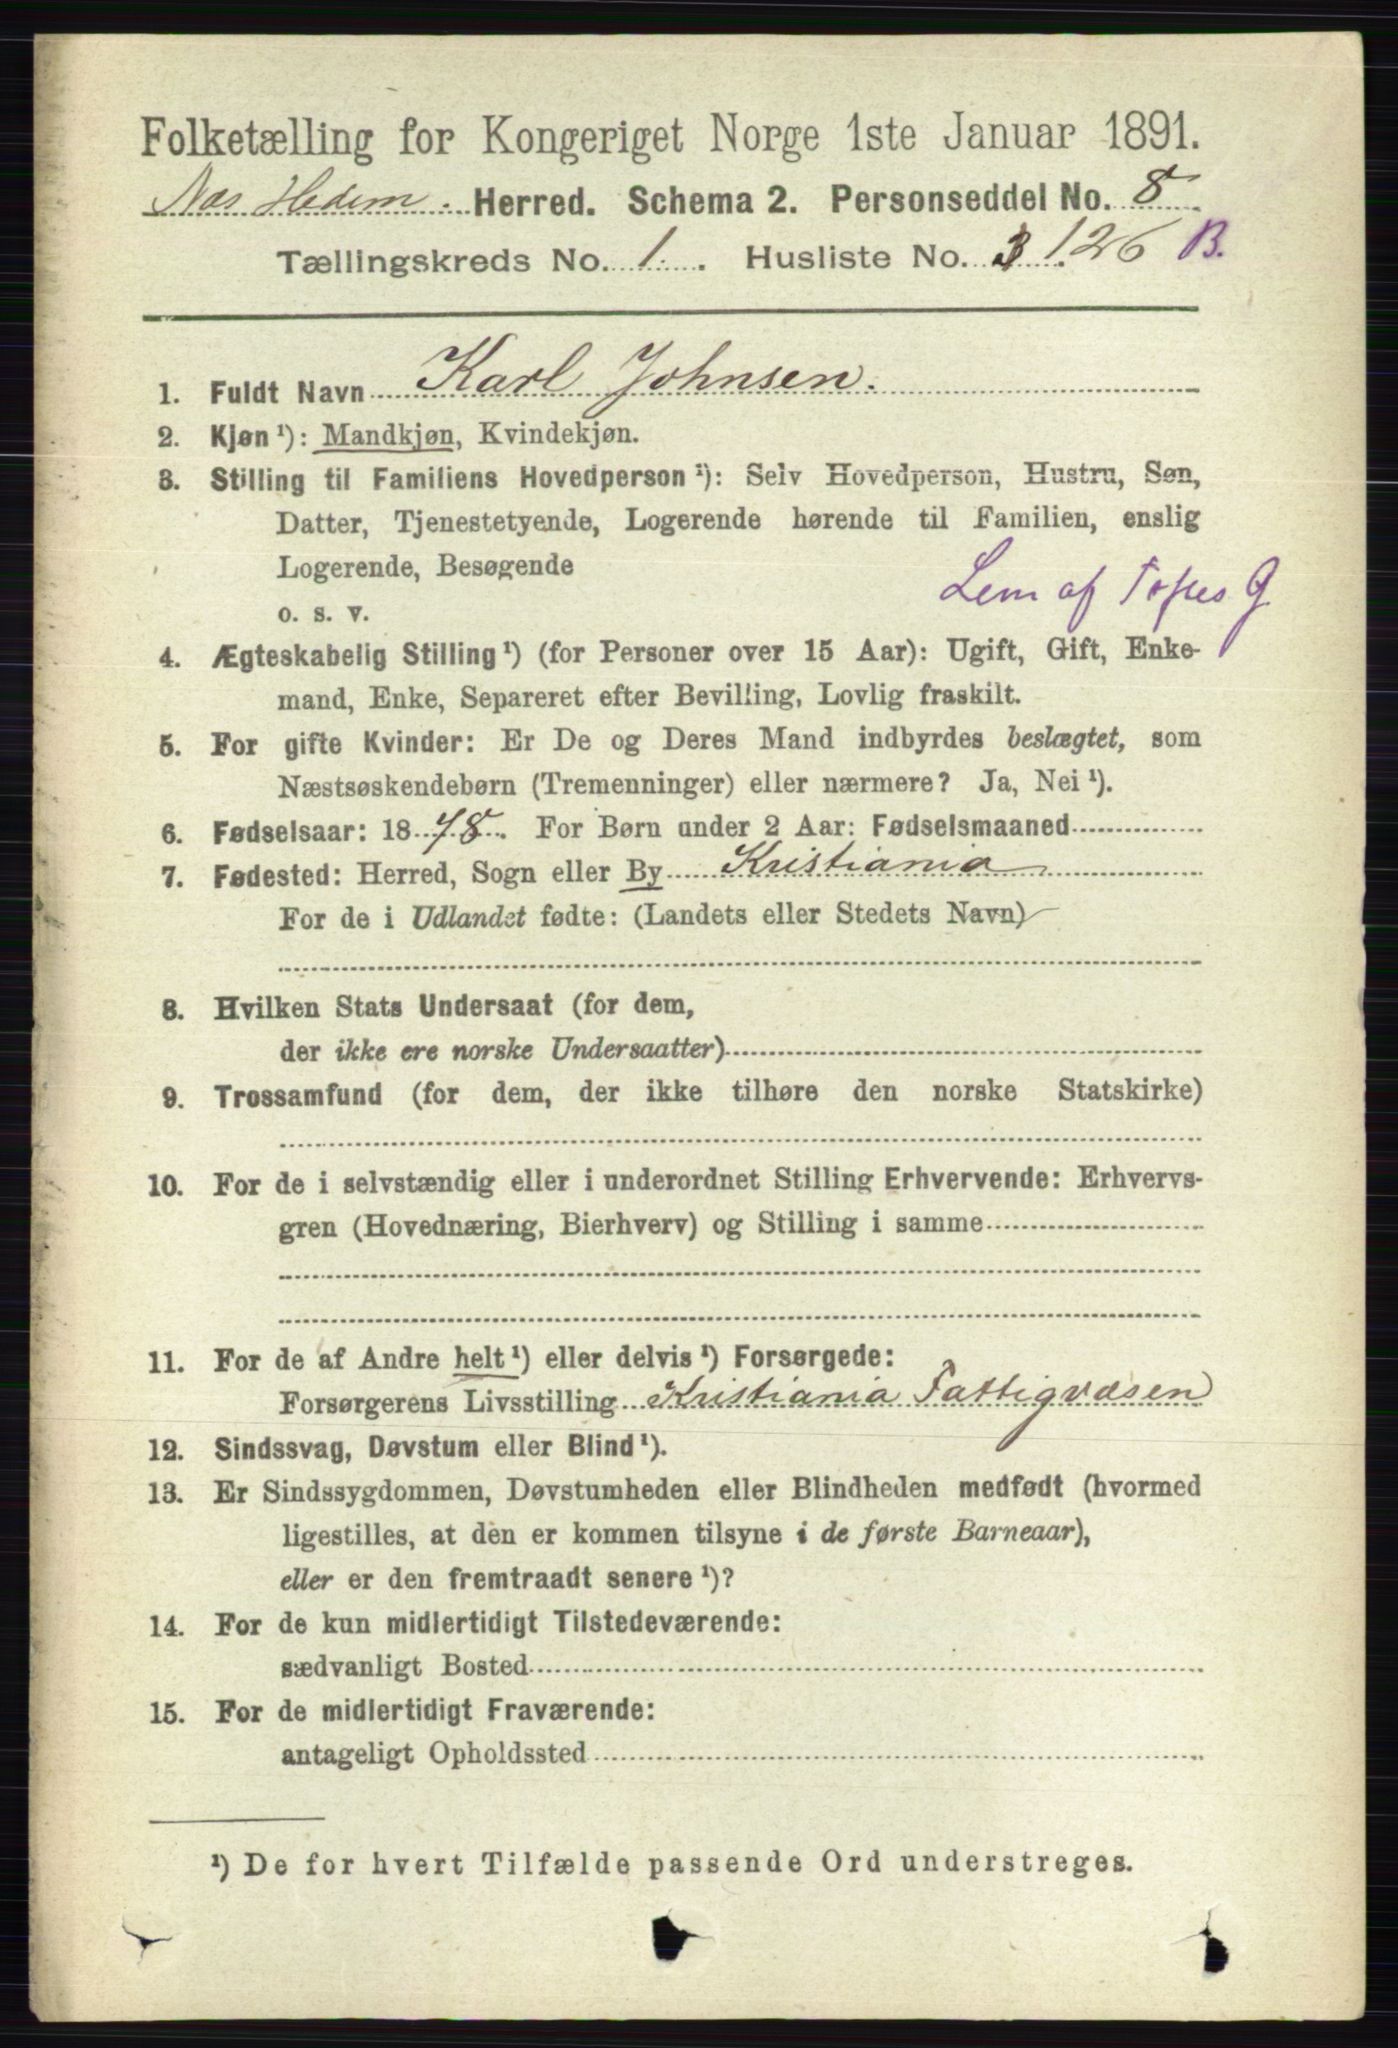 Folketælling for Kongeriget Norge 1ste Januar 1891.
Næs Hedem. Herred. Schema 2. Personseddel No. 8
Tællingskreds No. 1. Husliste No. 3 126 B.
1. Fuldt Navn Karl Johnsen.
2. Kjøn ¹): Mandkjøn, Kvindekjøn.
3. Stilling til Familiens Hovedperson ¹): Selv Hovedperson, Hustru, Søn,
Datter, Tjenestetyende, Logerende hørende til Familien, enslig
Logerende, Besøgende
o. s. v. Lem af Toftes G
4. Ægteskabelig Stilling ¹) (for Personer over 15 Aar): Ugift, Gift, Enke-
mand, Enke, Separeret efter Bevilling, Lovlig fraskilt.
5. For gifte Kvinder: Er De og Deres Mand indbyrdes beslægtet, som
Næstsøskendebørn (Tremenninger) eller nærmere? Ja, Nei ¹).
6. Fødselsaar: 1878. For Børn under 2 Aar: Fødselsmaaned
7. Fødested: Herred, Sogn eller By Kristiania
For de i Udlandet fødte: (Landets eller Stedets Navn)
8. Hvilken Stats Undersaat (for dem,
der ikke ere norske Undersaatter)
9. Trossamfund (for dem, der ikke tilhøre den norske Statskirke)
10. For de i selvstændig eller i underordnet Stilling Erhvervende: Erhvervs-
gren (Hovednæring, Bierhverv) og Stilling i samme
11. For de af Andre helt ¹) eller delvis ¹) Forsørgede:
Forsørgerens Livsstilling Kristiania Fattigvæsen
12. Sindssvag, Døvstum eller Blind ¹).
13. Er Sindssygdommen, Døvstumheden eller Blindheden medfødt (hvormed
ligestilles, at den er kommen tilsyne i de første Barneaar),
eller er den fremtraadt senere ¹)?
14. For de kun midlertidigt Tilstedeværende:
sædvanligt Bosted
15. For de midlertidigt Fraværende:
antageligt Opholdssted
¹) De for hvert Tilfælde passende Ord understreges.